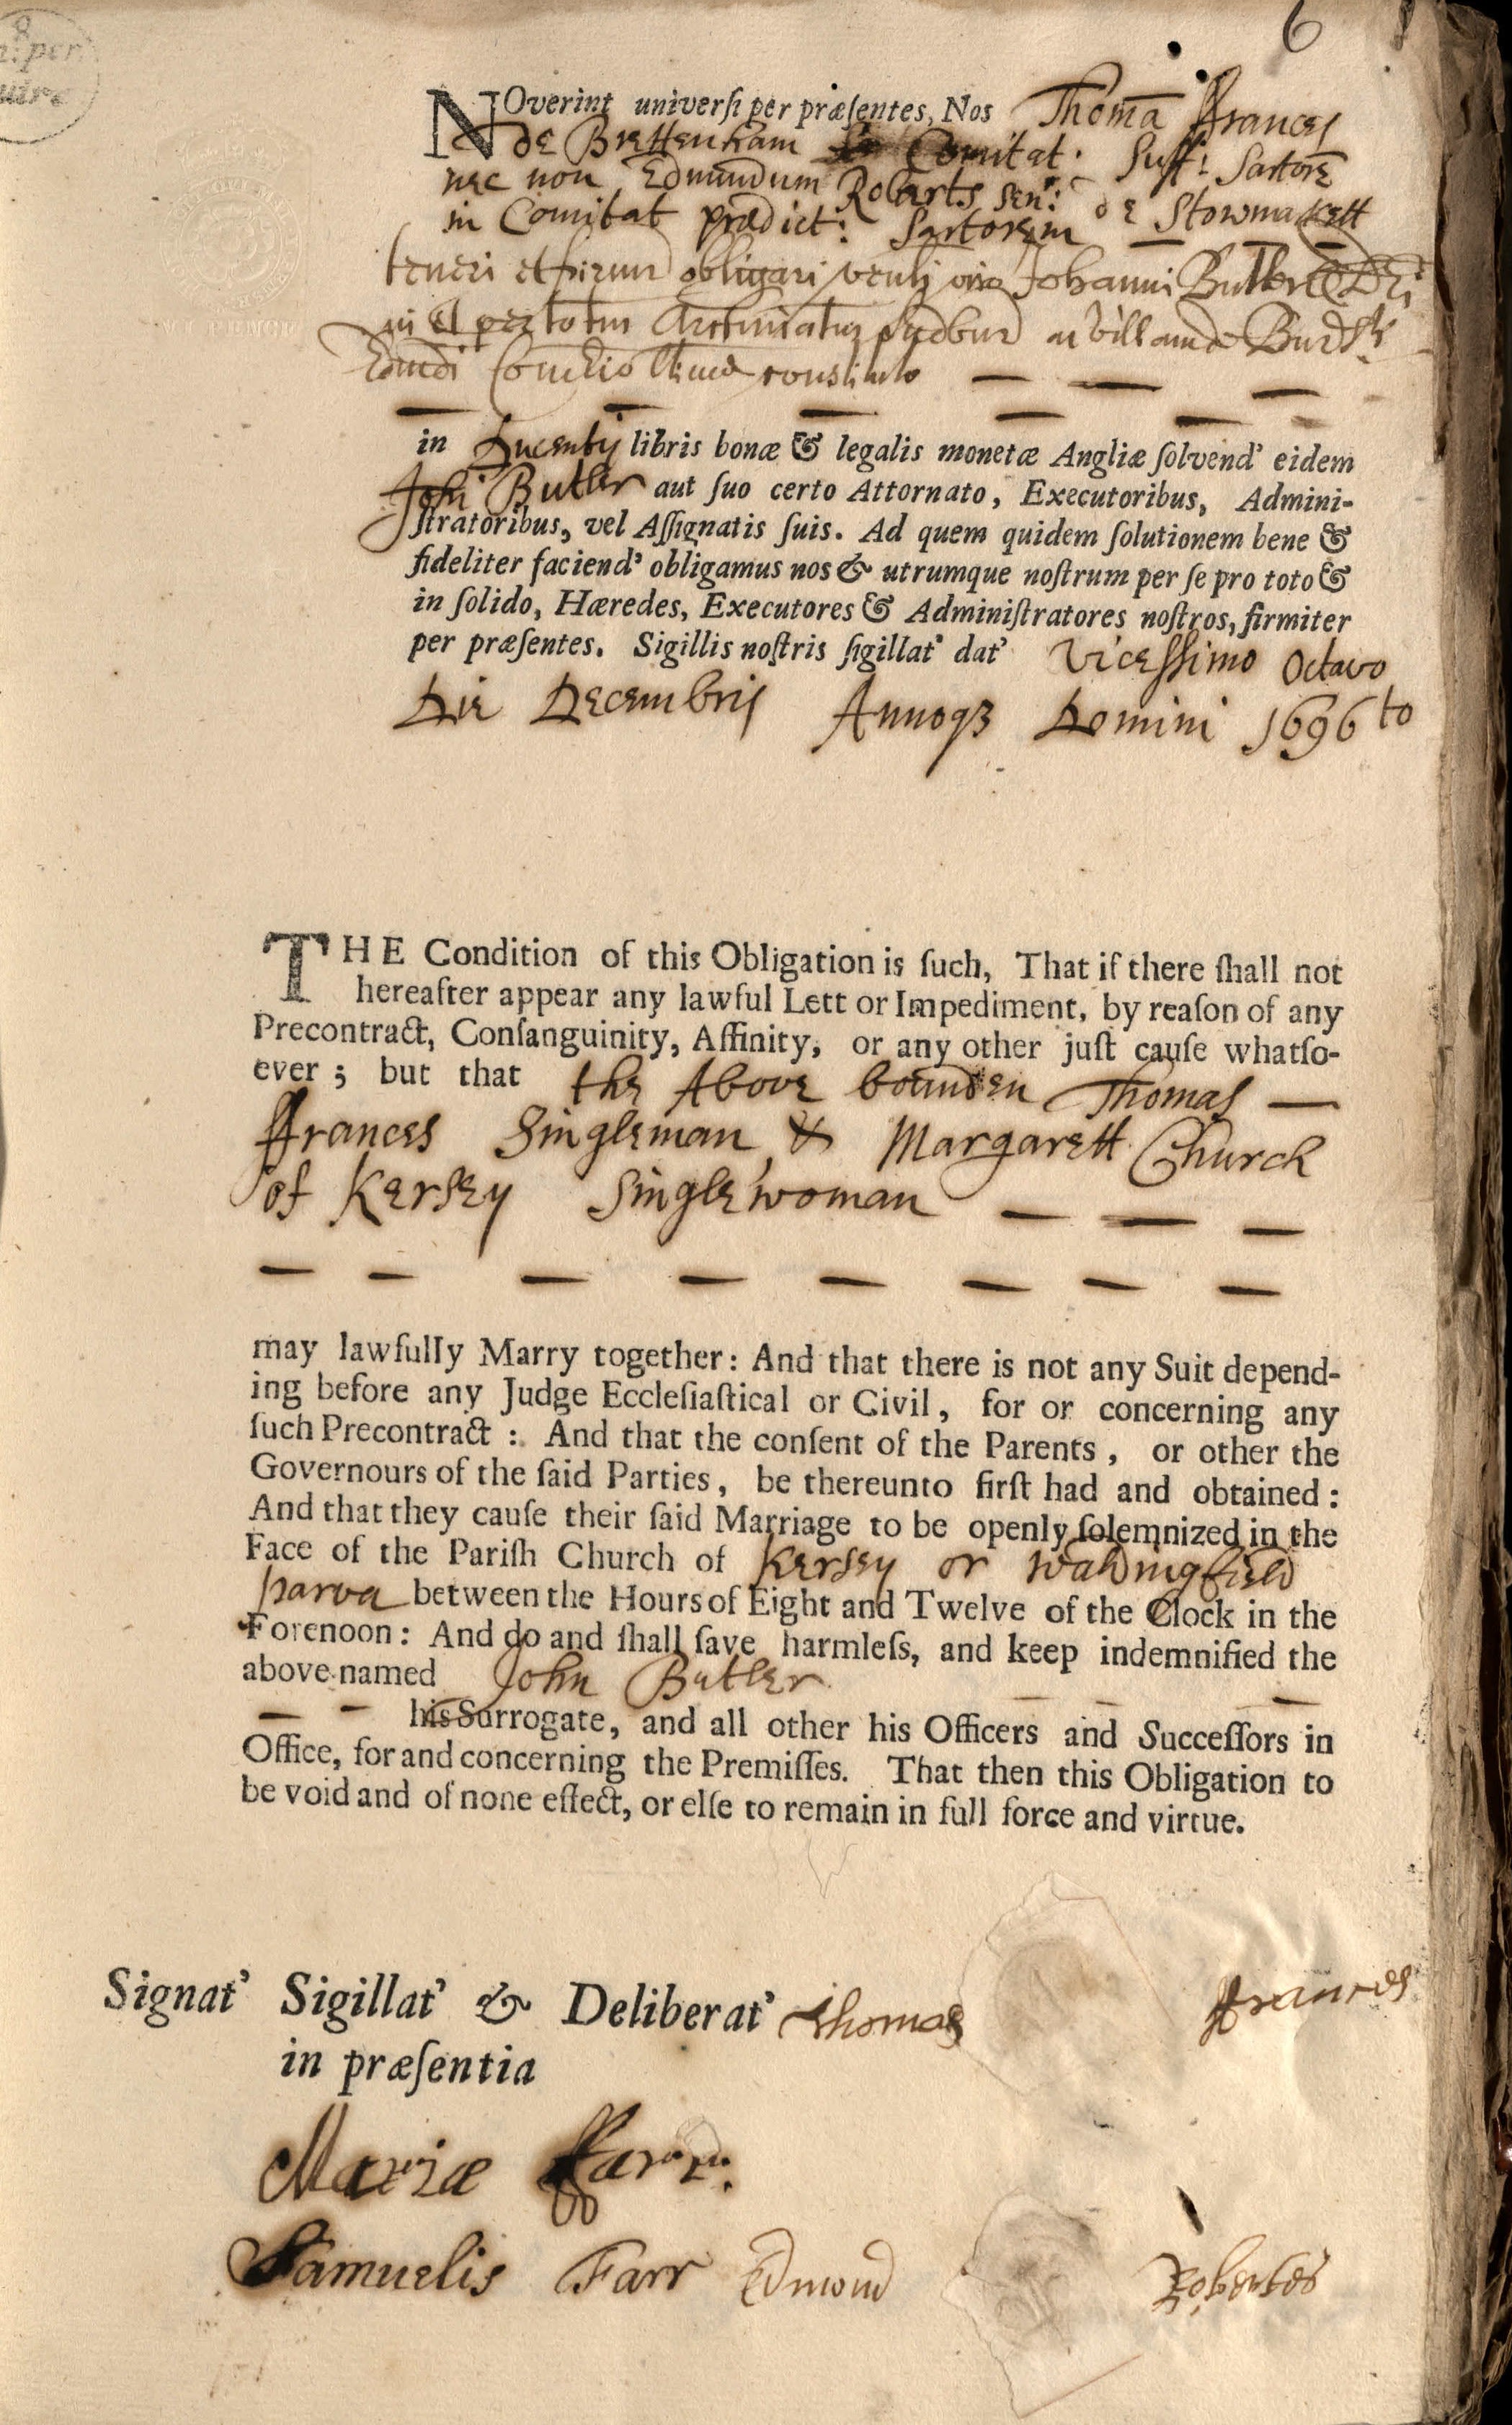 6
8
per
NOverint universi per præsentes, Nos Thomā ffrances
de Brettenham Comitat: Suff: Sartorē
nec non Edmundum Robarts sen: de Stowmakett
in Comitat prædict: Sartorem
teneri et firmit obligari Johanni Butler
in et per totum Sudbur ac villam de Bur
constituto
in Ducentis libris bonæ & legalis monetæ Angliæ solvend' eidem
Johi Butler aut suo certo Attornato, Executoribus, Admini-
stratoribus, vel Assignatis suis. Ad quem quidem solutionem bene &
fideliter faciend' obligamus nos & utrumque nostrum per se pro toto &
in solido, Hæredes, Executores & Administratores nostros, firmiter
per præsentes. Sigillis nostris sigillat' dat' Vicessimo Octavo
Die Decembris Annoqz Domini 1696to
THE Condition of this Obligation is such, That if there shall not
hereafter appear any lawful Lett or Impediment, by reason of any
Precontract, Consanguinity, Affinity, or any other just cause whatso-
ever; but that the Above bounden Thomas
ffrances Singleman & Margarett Church
of Kersey Singlewoman
may lawfully Marry together: And that there is not any Suit depend-
ing before any Judge Ecclesiastical or Civil, for or concerning any
such Precontract: And that the consent of the Parents, or other the
Governours of the said Parties, be thereunto first had and obtained:
And that they cause their said Marriage to be openly solemnized in the
Face of the Parish Church of Kersey or Waldingfield
parva between the Hours of Eight and Twelve of the Clock in the
Forenoon: And do and shall save harmless, and keep indemnified the
above named John Butler
his Surrogate, and all other his Officers and Successors in
Office, for and concerning the Premisses. That then this Obligation to
be void and of none effect, or else to remain in full force and virtue.
Signat' Sigillat' & Deliberat' Thomas ffrances
in præsentia
Mariæ ffarr
Samuelis Farr Edmond Robertes